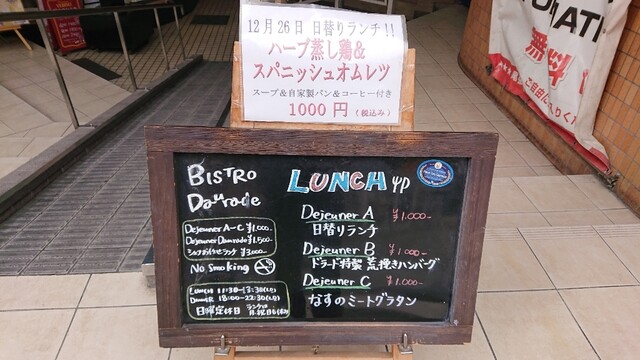 12月26日 日替りランチ!!
ハーブ蒸し鶏&
スパニッシュオムレツ
スープ&自家製パン&コーヒー付き
1000円 (税込み)
BISTRO
Daurade
Dejeuner A~C ¥1,000-
Dejeuner Daurade ¥1,500-
シェフおまかせランチ ¥3,000-
No Smoking
LUNCH 11:30-13:30(L.O)
DINNER 18:00-22:30(L.O)
日曜定休日
LUNCH
Dejeuner A ¥1.000-
日替りランチ
Dejeuner B ¥1.000-
ドラード特製 荒挽きハンバーグ
Dejeuner C ¥1.000-
なすのミートグラタン
無料